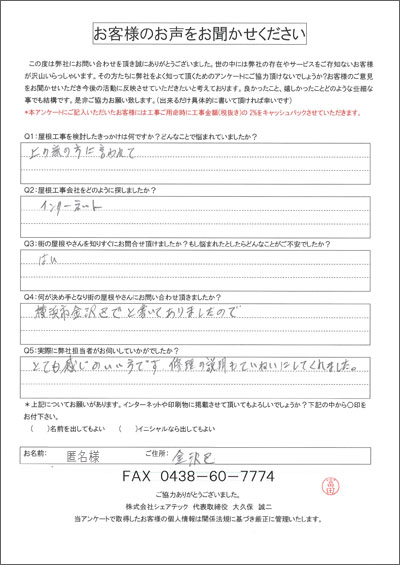 お客様のお声をお聞かせください
この度は弊社にお問い合わせを頂き誠にありがとうございました。世の中には弊社の存在やサービスをご存知ないお客様
が沢山いらっしゃいます。その方たちに弊社をよく知って頂くためのアンケートにご協力頂けないでしょうか?お客様のご意見
をお聞かせいただき今後の活動に反映させていただきたいと考えております。良かったこと、嬉しかったことどのような些細な
事でも結構です。是非ご協力お願い致します。(出来るだけ具体的に書いて頂ければ幸いです)
*本アンケートにご記入いただいたお客様には工事ご用命時に工事金額(税抜き)の2%をキャッシュバックさせていただきます。
Q1:屋根工事を検討したきっかけは何ですか?どんなことで悩まれていましたか?
上の家の方に言われて
Q2:屋根工事会社をどのように探しましたか?
インターネット
Q3:街の屋根やさんを知りすぐにお問合せ頂けましたか?もし悩まれたとしたらどんなことがご不安でしたか?
はい
Q4:何が決め手となり街の屋根やさんにお問い合わせ頂きましたか?
横浜市金沢区でと書いてありましたので
Q5:実際に弊社担当者がお伺いしていかがでしたか?
とても感じのいい方です 修理の説明もていねいにしてくれました。
*上記についてお願いがあります。インターネットや印刷物に掲載させて頂いてもよろしいでしょうか?下記の中から○印を
お付下さい。
( )名前を出してもよい ( )イニシャルなら出してもよい
お名前: 匿名様 ご住所: 金沢区
FAX 0438-60-7774
ご協力ありがとうございました。
株式会社シェアテック 代表取締役 大久保 誠二
当アンケートで取得したお客様の個人情報は関係法規に基づき厳正に管理いたします。